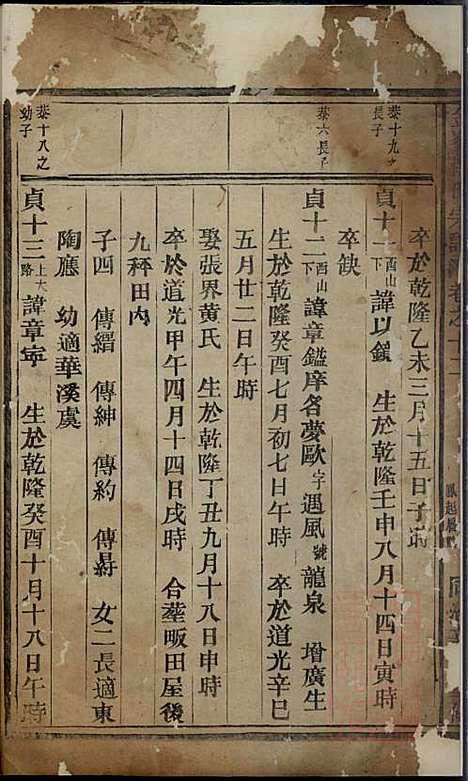 卒於乾隆乙未三月十五日子時
恭十九之長子
貞十一西山下 諱以鎖 生於乾隆壬申八月十四日寅時
卒缺
恭六長子
貞十二西山下 諱章鎰庠名夢歐字遇風號龍泉 增廣生
生於乾隆癸酉七月初七日午時 卒於道光辛巳
五月廿二日午時
娶張界黃氏 生於乾隆丁丑九月十八日申時
卒於道光甲午四月十四日戌時 合塟畈田屋後
九秤田內
子四 傳縉 傳紳 傳約 傳 女二長適東
陶應 幼適華溪虞
恭十八之幼子
貞十三上大路 諱章寧 生於乾隆癸酉十月十八日午時